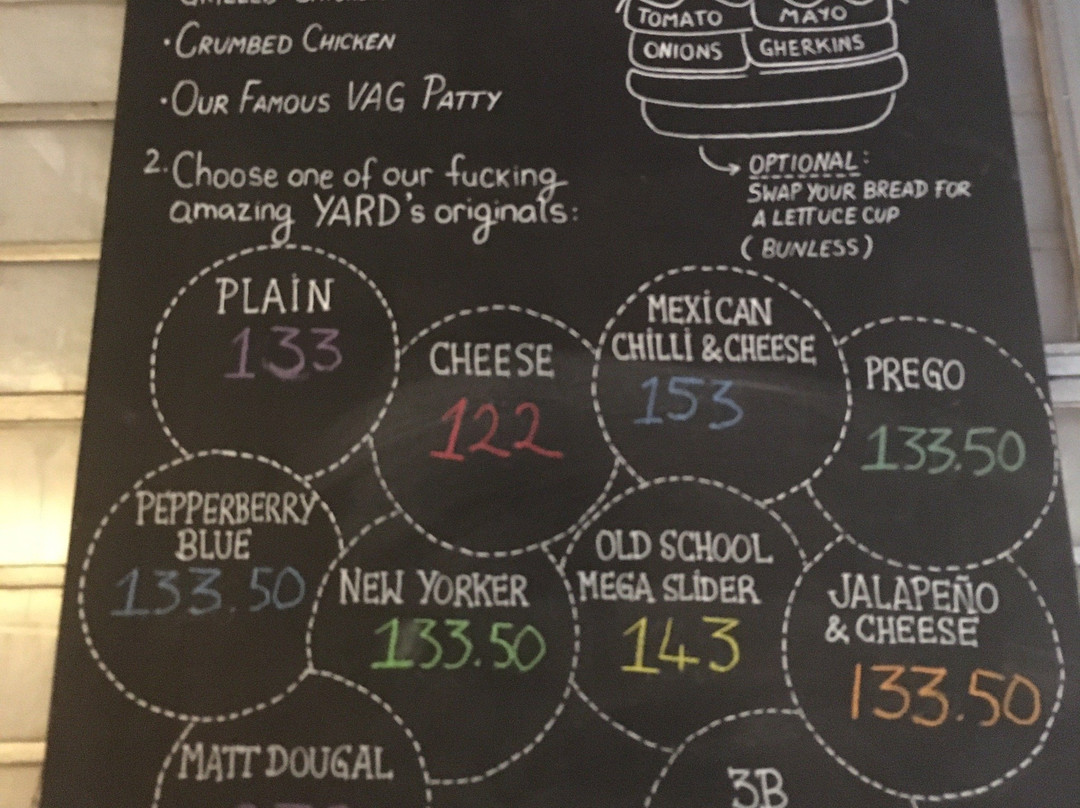 · CRUMBED CHICKEN
· OUR FAMOUS VAG PATTY
TOMATO
MAYO
ONIONS
GHERKINS
OPTIONAL:
SWAP YOUR BREAD FOR
A LETTUCE CUP
(BUNLESS)
2. Choose one of our fucking
amazing YARD's originals:
PLAIN
133
CHEESE
122
MEXICAN
CHILLI & CHEESE
153
PREGO
133.50
PEPPERBERRY
BLUE
133.50
NEW YORKER
133.50
OLD SCHOOL
MEGA SLIDER
143
JALAPEÑO
& CHEESE
133.50
MATT DOUGAL
3B